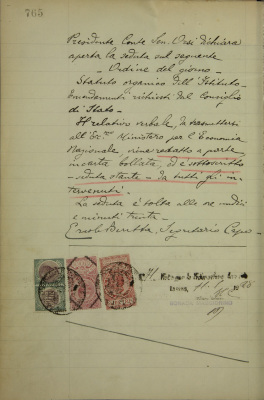 765
Presidente Conte Sen. Orsi dichiara
aperta la seduta sul seguente
- Ordine del giorno -
- Statuto organico dell'Istituto -
Emendamenti richiesti dal Consiglio
di Stato -
Il relativo verbale, da trasmettersi
all'Ec.mo Ministero per l'Economia
Nazionale, viene redatto a parte
in carta bollata, ed è sottoscritto
- seduta stante - da tutti gli in-
tervenuti. -
La seduta è tolta alle ore undici
e minuti trenta. -
Segretario Capo -